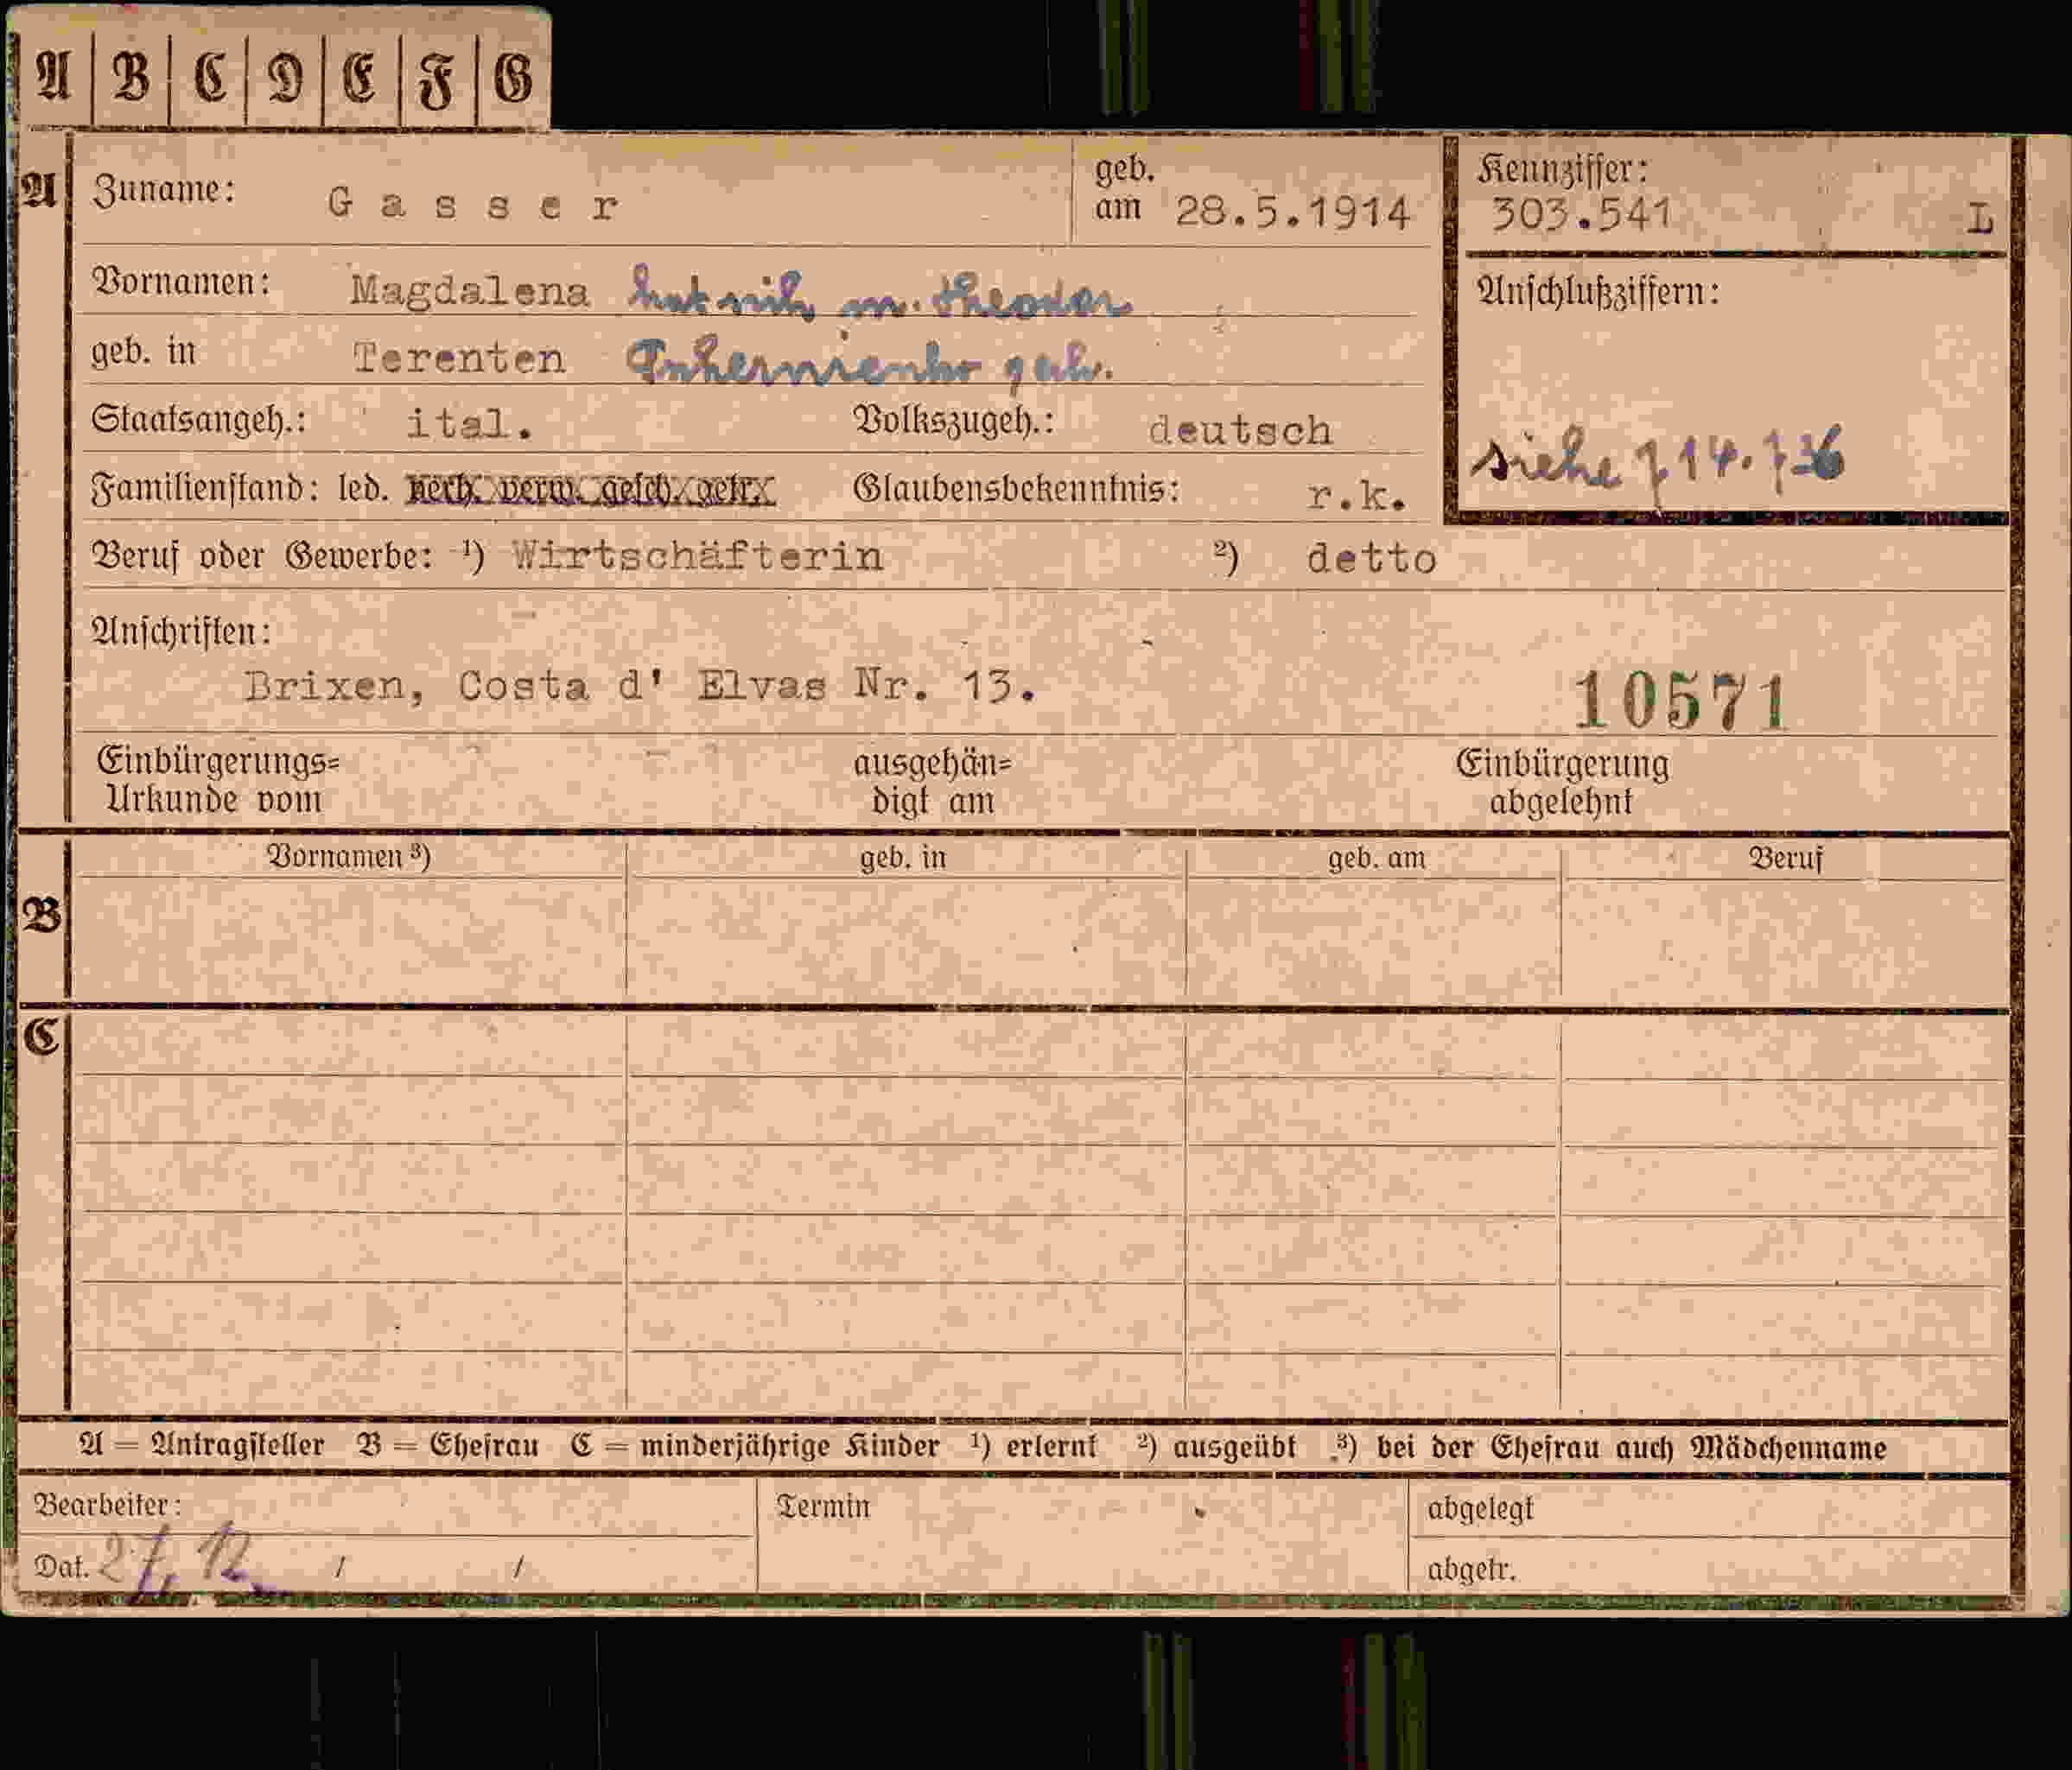 A B C D E F G
A Zuname: Gasser geb. am 28.5.1914 Kennziffer: 303.541 L
Vornamen: Magdalena hat sich m. Theodor Anschlußziffern:
geb. in Terenten geh.
Staatsangeh.: ital. Volkszugeh.: deutsch siehe
Familienstand: led. verh. verw. gesch. getr. Glaubensbekenntnis: r.k.
Beruf oder Gewerbe: ¹) Wirtschäfterin ²) detto
Anschriften:
Brixen, Costa d' Elvas Nr. 13. 10571
Einbürgerungs= ausgehän= Einbürgerung
Urkunde vom digt am abgelehnt
B Vornamen ³) geb. in geb. am Beruf
C
A = Antragsteller B = Ehefrau C = minderjährige Kinder ¹) erlernt ²) ausgeübt ³) bei der Ehefrau auch Mädchenname
Bearbeiter: Termin abgelegt
Dat. 27. 12. / / abgetr.